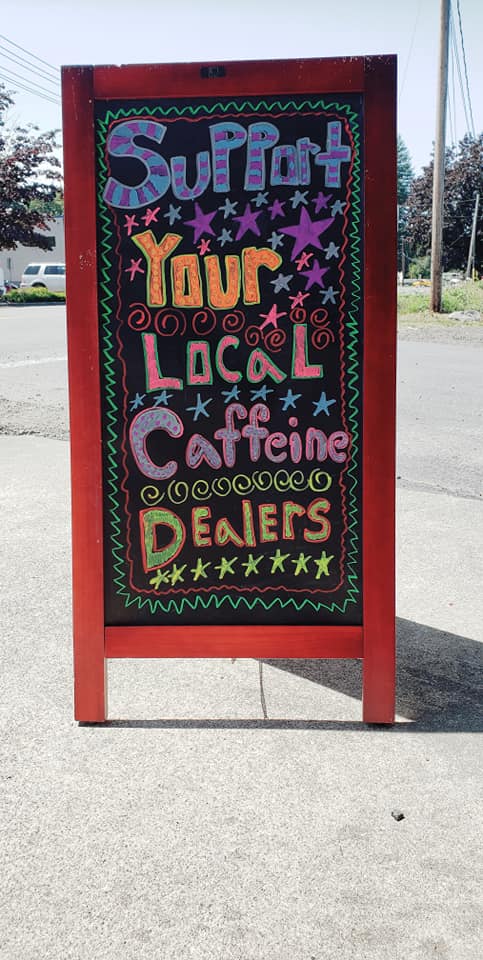 Support
Your
Local
Caffeine
Dealers